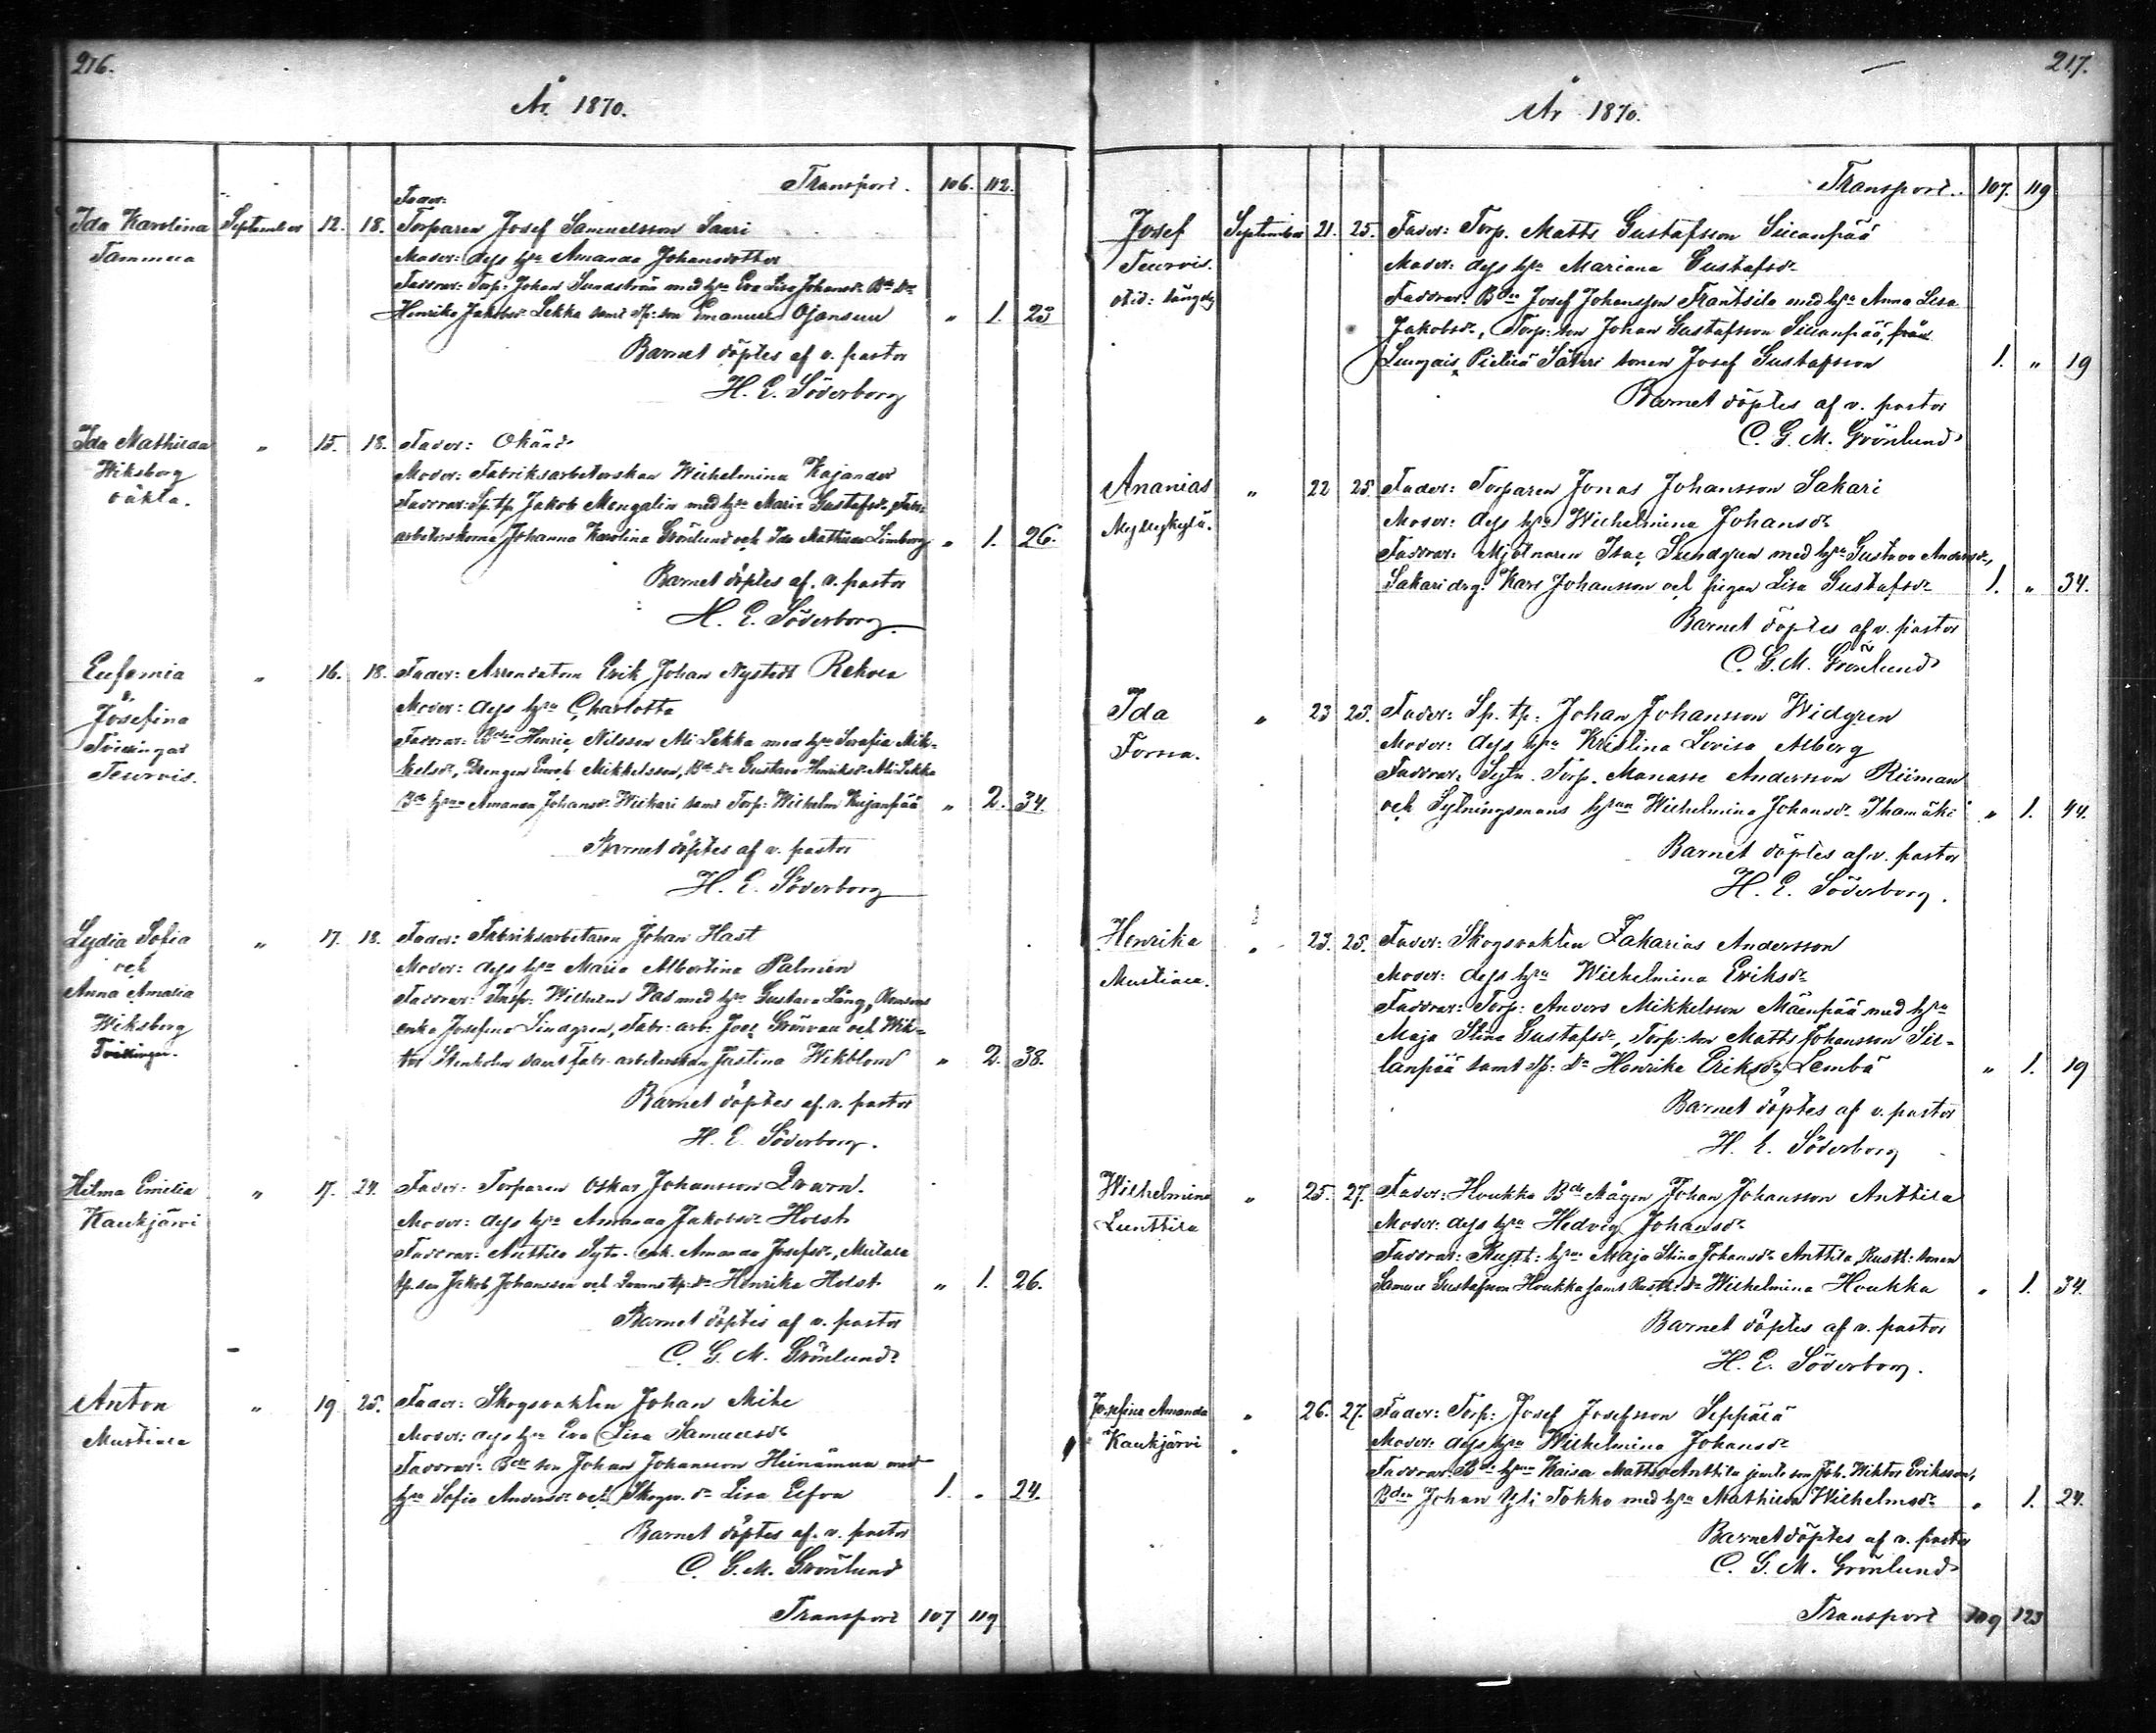 216.
År 1870.
Transport. 106. 112.
Fader:
Ida Karolina September 12. 18. Torparen Josef Samuelsson Saari
Tammela Moder: dess h:u Amanda Johansdotter
Faddrar: Torp: Johan Sundström med h:u Eva Lisa Johansd:r B:de d:r
Henrika Jakobsd:r Lekka samt Sp: son Emanuel Ojansuu " 1. 25
Barnet döptes af v. pastor
H. E. Söderborg
Ida Mathilda " 15. 18. Fader: Okänd
Wiksberg Moder: Fabriksarbeterskan Wilhelmina Kajander
oäkta. Faddrar: Sp. tp. Jakob Mengalin med h:u Maria Gustafsd:r, Fabr:
arbeterskorna Johanna Karolina Grönlund och Ida Mathilda Limberg " 1. 26.
Barnet döptes af v. pastor
H. E. Söderborg
Eufemia " 16. 18. Fader: Arrendatorn Erik Johan Nystedt Rekola
& Moder: dess h:u Charlotta
Josefina
Tvillingar Faddrar: B:den Henric Nilsson Ali Lekka med h:u Serafia Mik-
Teurois. kelsd:r, Drengen Enoch Mikkelsson, B:de d:r Gustava Henriksd:r Ali Lekka
B:de h:un Amanda Johansd:r Wiikari samt Torp: Wilhelm Kujanpää " 2. 34.
Barnet döptes af v. pastor
H. E. Söderborg
Lydia Sofia " 17. 18. Fader: Fabriksarbetaren Johan Hast
och Moder: dess h:u Maria Albertina Palmén
Anna Amalia Faddrar: Insp: Wilhelm Pas med h:u Gustava Lång,
Wiksberg enka Josefina Lindgren, Fabr: arb: Joel Grönvall och Wik-
Tvillingar. tor Stenholm samt Fabr. arbeterskan Justina Wikblom " 2. 38.
Barnet döptes af v. pastor
H. E. Söderborg.
Hilma Emilia " 17. 24. Fader: Torparen Oskar Johansson Qvarn.
Kaukjärvi Moder: dess h:u Amanda Jakobsd:r Holst
Faddrar: Anttila Sytn. enk. Amanda Josefsd:r, Mulala
tp. son Jakob Johansson och Qvarns tp: d:r Henrika Holst " 1. 26.
Barnet döptes af v. pastor
C. G. M. Grönlund
Anton " 19 25. Fader: Skogvakten Johan Mike
Mustiala Moder: dess h:u Eva Lisa Samuelsd:r
Faddrar: B:de son Johan Johansson Heinämaa med
h:u Sofia Andersd:r och Skogv. d:r Lisa Elfva 1. " 24.
Barnet döptes af v. pastor
C. G. M. Grönlund
Transport 107 119
217.
År 1870.
Transport. 107. 119
Josef September 21. 25. Fader: Torp. Matts Gustafsson Sillanpää
Teurois. Moder: dess h:u Mariana Gustafsd:r
Faddrar: B:den Josef Johansson Frantsila med h:u Anna Lisa
Jakobsd:r, Torp: son Johan Gustafsson Sillanpää, från
Pietilä Säteri sonen Josef Gustafsson 1. " 19
Barnet döptes af v. pastor
C. G. M. Grönlund
Ananias " 22 25. Fader: Torparen Jonas Johansson Sakari
Myllykylä. Moder: dess h:u Wilhelmina Johansd:r
Faddrar: Mjölnaren Isac Sundgren med h:u Gustava Andersd:r,
Sakari drg. Karl Johansson och pigan Lisa Gustafsd:r 1. " 34.
Barnet döptes af v. pastor
C. G. M. Grönlund
Ida " 23 25. Fader: Sp. tp: Johan Johansson Widgren
Torra. Moder: dess h:u Kristina Lovisa Alberg
Faddrar: Sytn. Torp. Manasse Andersson Riiman
och Sytningsmans h:un Wilhelmina Johansd:r Ihamäki " 1. 44.
Barnet döptes af v. pastor
H. E. Söderborg.
Henrika " 23. 25. Fader: Skogsvakten Zakarias Andersson
Mustiala. Moder: dess h:u Wilhelmina Eriksd:r
Faddrar: Torp: Anders Mikkelsson Mäenpää med h:u
Maja Stina Gustafsd:r, Torp: son Matts Johansson Sil-
lanpää samt Sp: d:r Henrika Eriksd:r Lembä " 1. 19
Barnet döptes af v. pastor
H. E. Söderborg
Wilhelmina " 25. 27. Fader: Houkka B:de Mågen Johan Johansson Anttila
Lunttila Moder: dess h:u Hedvig Johansd:r
Faddrar: Rustt: h:un Maja Stina Johansd:r Anttila, Rustt: sonen
Samuel Gustafsson Houkka samt Rustt: d:r Wilhelmina Houkka " 1. 34.
Barnet döptes af v. pastor
H. E. Söderborg.
Josefina Amanda " 26. 27. Fader: Torp: Josef Josefsson Seppälä
Kaukjärvi Moder: dess h:u Wilhelmina Johansd:r
Faddrar: B:de h:un Kaisa Mattsd:r Anttila jemte son Joh. Wiktor Eriksson,
B:den Johan Yli Tokko med h:u Mathilda Wilhelmsd:r " 1. 24.
Barnet döptes af v. pastor
C. G. M. Grönlund
Transport 109 123